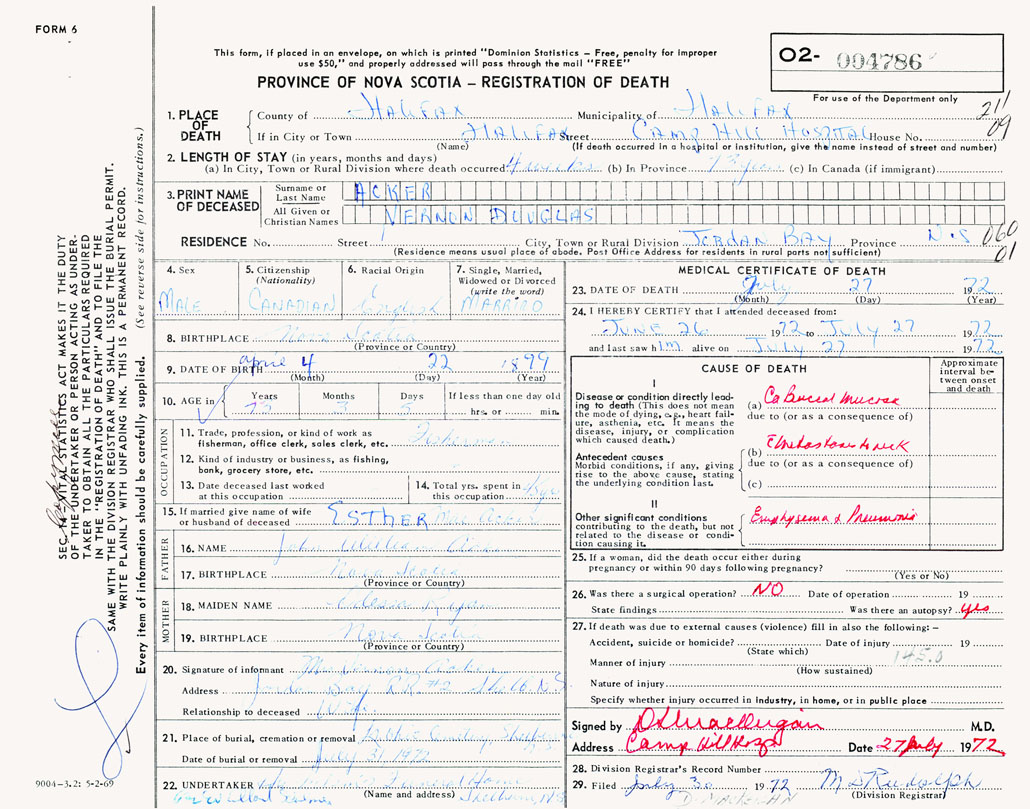 FORM 6
This form, if placed in an envelope, on which is printed "Dominion Statistics – Free, penalty for improper
use $50," and properly addressed will pass through the mail "FREE"
O2- 004786
For use of the Department only
PROVINCE OF NOVA SCOTIA – REGISTRATION OF DEATH
211
09
1. PLACE OF DEATH
County of HALIFAX Municipality of HALIFAX
If in City or Town HALIFAX Street CAMP HILL HOSPITAL House No.
(Name) (If death occurred in a hospital or institution, give the name instead of street and number)
2. LENGTH OF STAY (in years, months and days)
(a) In City, Town or Rural Division where death occurred 4 weeks (b) In Province 73 years (c) In Canada (if immigrant)
3. PRINT NAME OF DECEASED
Surname or Last Name ACKER
All Given or Christian Names VERNON DOUGLAS
RESIDENCE No. Street City, Town or Rural Division JORDAN BAY Province N.S
060
01
(Residence means usual place of abode. Post Office Address for residents in rural parts not sufficient)
4. Sex
MALE
5. Citizenship
(Nationality)
CANADIAN
6. Racial Origin
English
7. Single, Married,
Widowed or Divorced
(write the word)
MARRIED
8. BIRTHPLACE Nova Scotia
(Province or Country)
9. DATE OF BIRTH april 4 22 1899
(Month) (Day) (Year)
10. AGE in
Years Months Days If less than one day old
73 3 5 hrs. or min.
OCCUPATION
11. Trade, profession, or kind of work as
fisherman, office clerk, sales clerk, etc. Fisherman
12. Kind of industry or business, as fishing,
bank, grocery store, etc.
13. Date deceased last worked
at this occupation
14. Total yrs. spent in
this occupation
15. If married give name of wife
or husband of deceased ESTHER Mae
FATHER
16. NAME John William
17. BIRTHPLACE Nova Scotia
(Province or Country)
MOTHER
18. MAIDEN NAME
19. BIRTHPLACE Nova Scotia
(Province or Country)
20. Signature of informant Mrs Vernon Acker
Address Jordan Bay RR #2 Shelb. N.S.
Relationship to deceased Wife
21. Place of burial, cremation or removal
Date of burial or removal July 1972
22. UNDERTAKER Funeral Home
(Name and address)
MEDICAL CERTIFICATE OF DEATH
23. DATE OF DEATH July 27 1972
(Month) (Day) (Year)
24. I HEREBY CERTIFY that I attended deceased from:
JUNE 26 1972 to JULY 27 1972
and last saw him alive on July 27 1972
CAUSE OF DEATH
Approximate
interval be-
tween onset
and death
I
Disease or condition directly lead-
ing to death (This does not mean
the mode of dying, e.g., heart fail-
ure, asthenia, etc. It means the
disease, injury, or complication
which caused death.)
(a) Ca Buccal Mucosa
due to (or as a consequence of)
Antecedent causes
Morbid conditions, if any, giving
rise to the above cause, stating
the underlying condition last.
(b) neck
due to (or as a consequence of)
(c)
II
Other significant conditions
contributing to the death, but not
related to the disease or condi-
tion causing it.
Emphysema & Pneumonia
25. If a woman, did the death occur either during
pregnancy or within 90 days following pregnancy?
(Yes or No)
26. Was there a surgical operation? NO Date of operation 19
State findings Was there an autopsy? yes
27. If death was due to external causes (violence) fill in also the following: –
Accident, suicide or homicide? Date of injury 19
(State which)
145.0
Manner of injury
(How sustained)
Nature of injury
Specify whether injury occurred in industry, in home, or in public place
Signed by M.D.
Address Camp Hill Hosp Date 27 July 1972
28. Division Registrar's Record Number
29. Filed July 30 1972 M D Rudolph
(Division Registrar)
SEC. 14–VITAL STATISTICS ACT MAKES IT THE DUTY
OF THE UNDERTAKER OR PERSON ACTING AS UNDER-
TAKER TO OBTAIN ALL THE PARTICULARS REQUIRED
IN THE "REGISTRATION OF DEATH" AND TO FILE THE
SAME WITH THE DIVISION REGISTRAR WHO SHALL ISSUE THE BURIAL PERMIT.
WRITE PLAINLY WITH UNFADING INK. THIS IS A PERMANENT RECORD.
Every item of information should be carefully supplied. (See reverse side for instructions.)
9004–3.2: 5-2-69